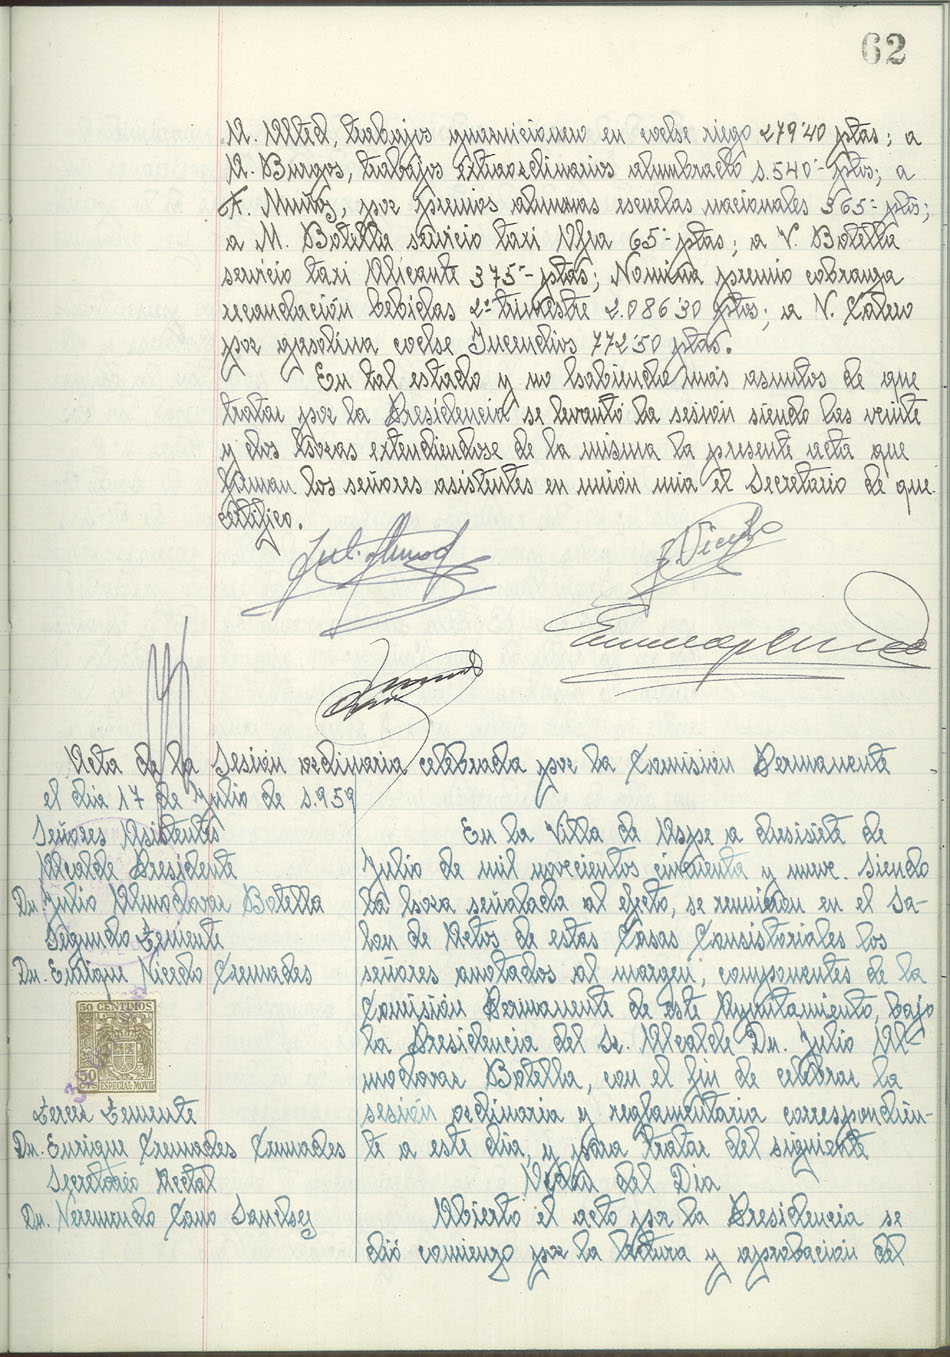 62
A. Alted, trabajos guarniciones en coche riego 279'40 ptas; a
A. Burgos, trabajos extraordinarios alumbrado 1.540'- ptas; a
F. Muñoz, por premios alumnas escuelas nacionales 365'- ptas;
a M. Botella servicio taxi 65'- ptas; a V. Botella
servicio taxi Alicante 375'- ptas; Nomina premio cobranza
recaudación bebidas 2º trimestre 2.086'30 ptas; a N. Calero
por gasolina coche Incendios 772'50 ptas.
En tal estado y no habiendo mas asuntos de que
tratar por la Presidencia se levantó la sesión siendo las veinte
y dos horas extendiendose de la misma la presente acta que
firman los señores asistentes en unión mia el Secretario de que
certifico.
Acta de la Sesión ordinaria celebrada por la Comisión Permanente
el dia 17 de Julio de 1.959
Señores Asistentes
Alcalde Presidente
Dn. Julio Almodovar Botella
Segundo Teniente
Dn. Enrique Vicedo Cremades
50 CENTIMOS
50 CTS
ESPECIAL MOVIL
Tercer Teniente
Dn. Enrique Cremades Cremades
Secretario Acctal
Dn. Veremondo Cano Sanchez
En la Villa de Aspe a diesisiete de
Julio de mil novcientos cincuenta y nueve. Siendo
la hora señalada al efecto, se reunieron en el Sa-
lon de Actos de estas Casas Consistoriales los
señores anotados al margen; componentes de la
Comisión Permanente de este Ayuntamiento, bajo
la Presidencia del Sr. Alcalde Dn. Julio Al-
modovar Botella, con el fin de celebrar la
sesión ordinaria y reglamentaria correspondien-
te a este dia, y para tratar del siguiente
Orden del Dia
Abierto el acto por la Presidencia se
dió comienzo por la lectura y aprobación del